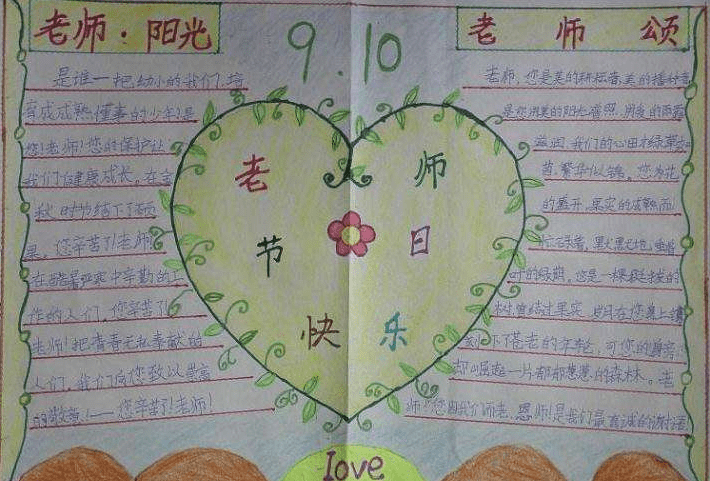 老师·阳光
9.10
老师颂
是谁一把幼小的我们，培
育成成熟懂事的少年！是
您！老师！您的保护让
我们健康成长。在金
秋时节结下了硕
果。您辛苦了！老师！
在酷暑严寒中辛勤的工
作的人们，您辛苦了！
老师！把青春无私奉献的
人们，我们向您致以崇高
的敬意！——您辛苦了！老师！
老师
节日
快乐
老师，您是美的耕耘者，美的播种者
是您用美的阳光普照，用美的雨露
滋润，我们的心田才绿草如
茵，繁华似锦。您为花
的盛开，果实的成熟而
忙碌着，默默地，垂着
叶的绿荫。您是一棵挺拔的
树，曾结过果实，岁月在您身上镌
刻下苍老的年轮，可您的身旁
却崛起一片郁郁葱葱的森林。老
师！恩师！是我们最真诚的谢语
love